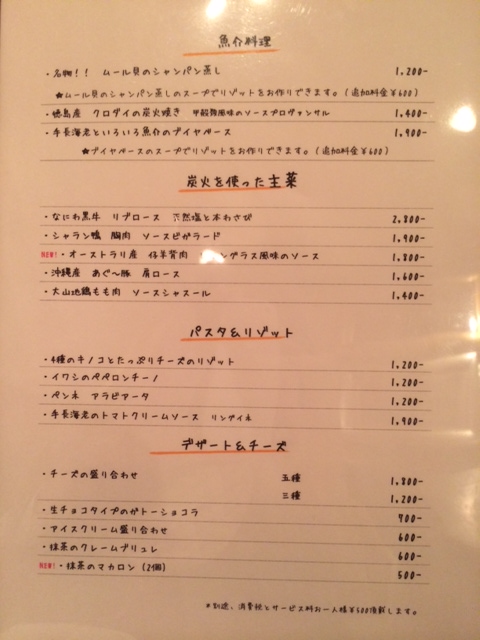 魚介料理
・名物！！ ムール貝のシャンパン蒸し 1,200-
★ムール貝のシャンパン蒸しのスープでリゾットをお作りできます。（追加料金¥600）
・徳島産 クロダイの炭火焼き 甲殻類風味のソースプロヴァンサル 1,400-
・手長海老といろいろ魚介のブイヤベース 1,900-
★ブイヤベースのスープでリゾットをお作りできます。（追加料金¥600）
炭火を使った主菜
・なにわ黒牛 リブロース 天然塩と本わさび 2,800-
・シャラン鴨 胸肉 ソースビガラード 1,900-
NEW!・オーストラリ産 仔羊背肉 グラス風味のソース 1,800-
・沖縄産 あぐ〜豚 肩ロース 1,600-
・大山地鶏もも肉 ソースシャスール 1,400-
パスタ&リゾット
・4種のキノコとたっぷりチーズのリゾット 1,200-
・イワシのペペロンチーノ 1,200-
・ペンネ アラビアータ 1,200-
・手長海老のトマトクリームソース リングイネ 1,900-
デザート&チーズ
・チーズの盛り合わせ 五種 1,800-
三種 1,200-
・生チョコタイプのガトーショコラ 700-
・アイスクリーム盛り合わせ 600-
・抹茶のクレームブリュレ 600-
NEW!・抹茶のマカロン（2個） 500-
*別途、消費税とサービス料お一人様¥500頂戴します。